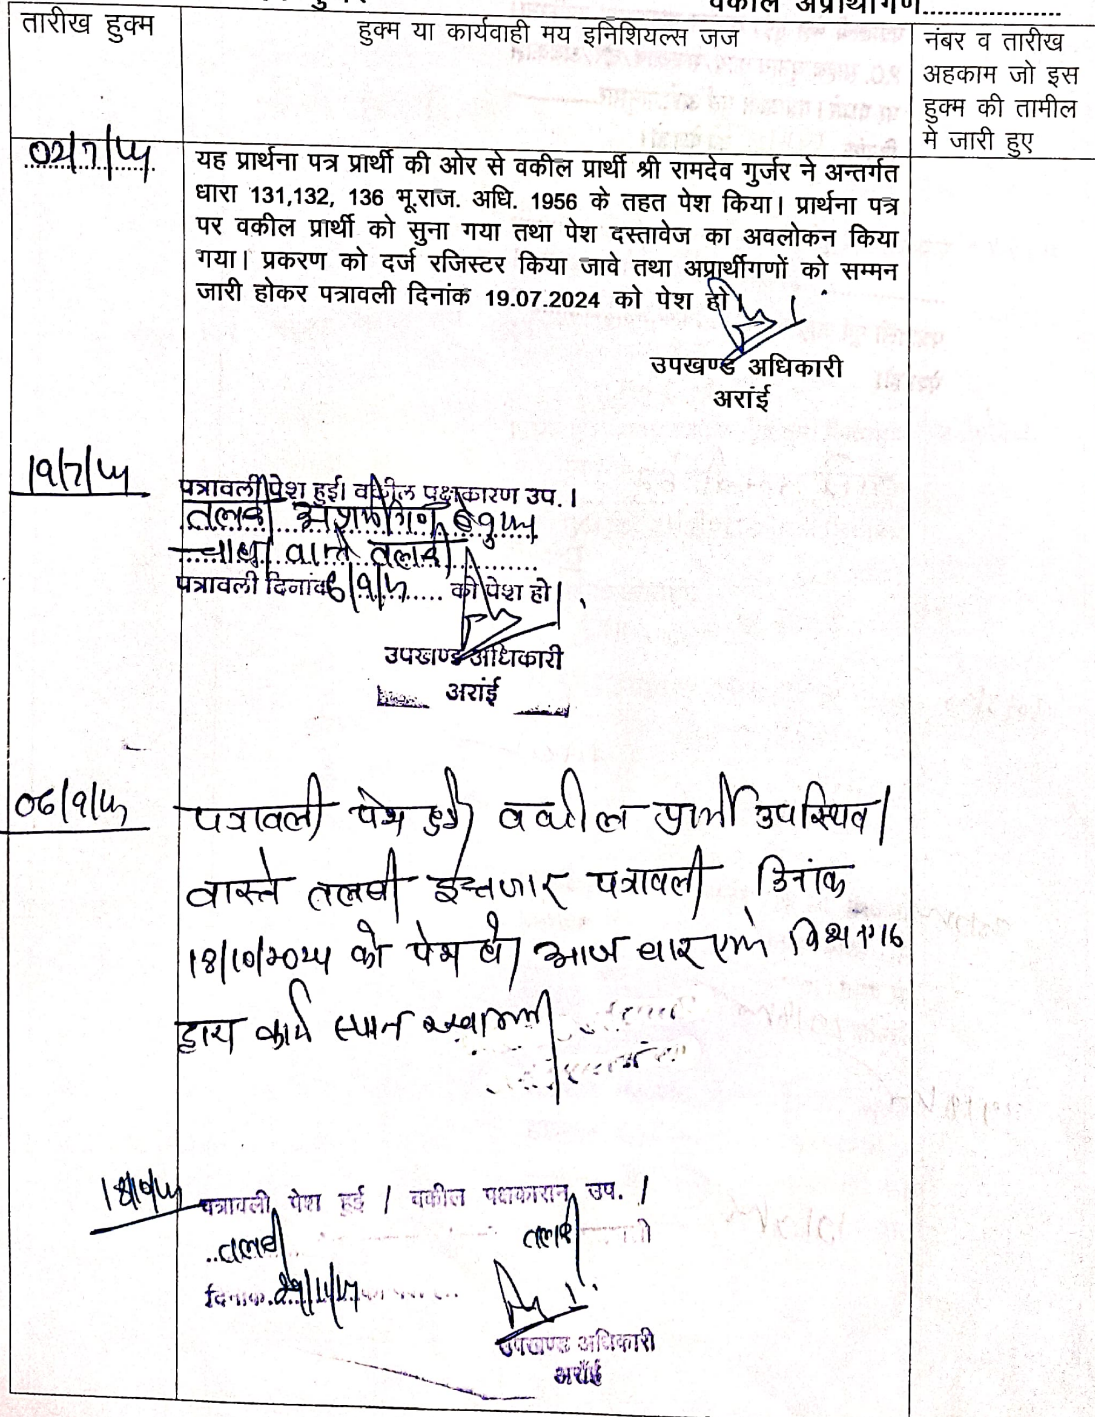 वकील अप्रार्थीगण....................
तारीख हुक्म
हुक्म या कार्यवाही मय इनिशियल्स जज
नंबर व तारीख
अहकाम जो इस
हुक्म की तामील
मे जारी हुए
02/7/24
यह प्रार्थना पत्र प्रार्थी की ओर से वकील प्रार्थी श्री रामदेव गुर्जर ने अन्तर्गत
धारा 131,132, 136 भू.राज. अधि. 1956 के तहत पेश किया। प्रार्थना पत्र
पर वकील प्रार्थी को सुना गया तथा पेश दस्तावेज का अवलोकन किया
गया। प्रकरण को दर्ज रजिस्टर किया जावे तथा अप्रार्थीगणों को सम्मन
जारी होकर पत्रावली दिनांक 19.07.2024 को पेश हो।
उपखण्ड अधिकारी
अरांई
19/7/24
पत्रावली पेश हुई। वकील पक्षकारण उप.।
तलबी
वास्ते तलबी
पत्रावली दिनांक 6/9/24 को पेश हो।
उपखण्ड अधिकारी
अरांई
06/9/24
पत्रावली पेश हुई। वकील प्रार्थी उपस्थित।
वास्ते तलबी इन्तजार पत्रावली दिनांक
18/10/2024 को पेश हो। आज बार
द्वारा कार्य
पत्रावली पेश हुई। वकील पक्षकारान उप.।
तलबी तलबी
दिनांक
उपखण्ड अधिकारी
अराँई